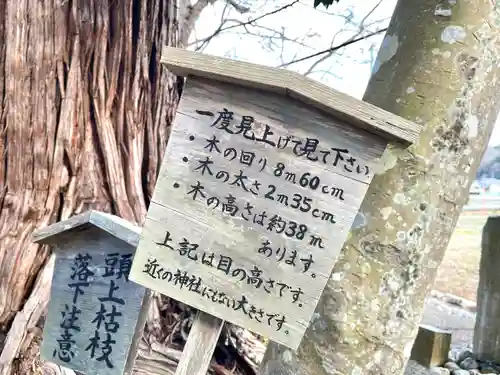 一度見上げて見て下さい
・木の回り8m60cm
・木の太さ2m35cm
・木の高さは約38m
あります。
上記は目の高さです。
近くの神社にもない大きさです。
頭上枯枝
落下注意